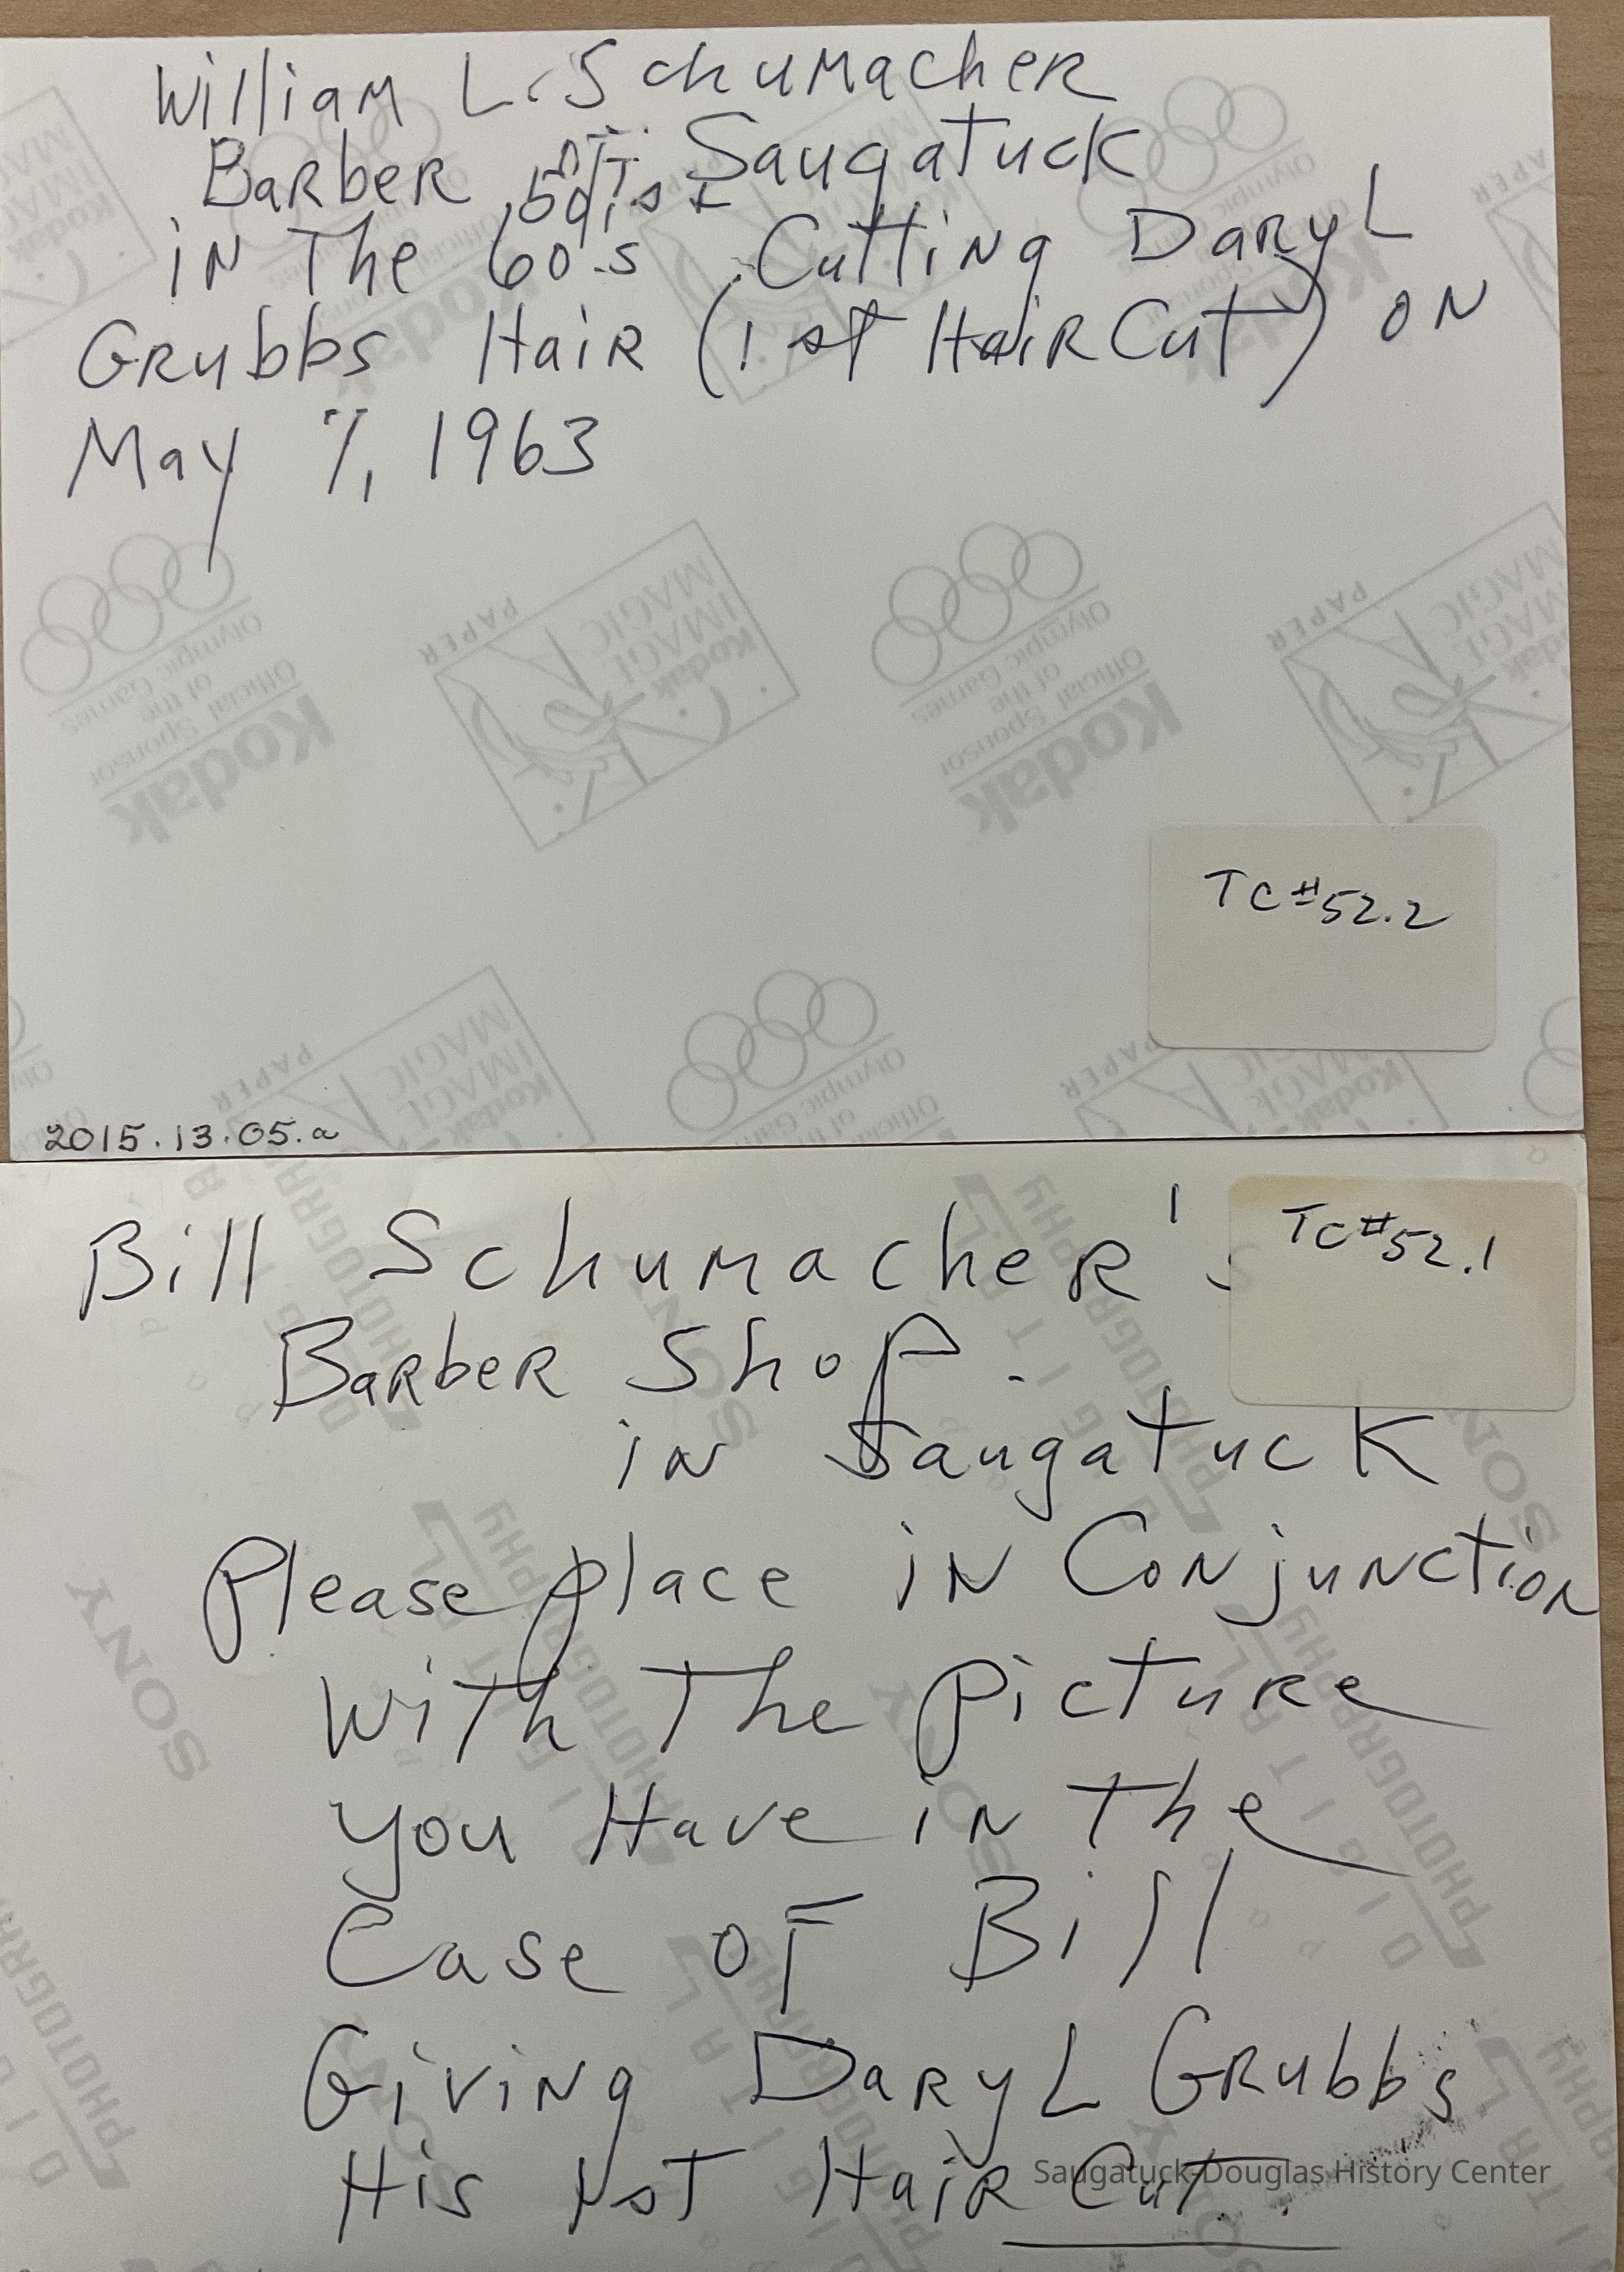 William L. Schumacher
Barber Saugatuck
in The 60's Cutting Daryl
Grubbs Hair (1st Hair Cut) on
May 7, 1963
TC#52.2
2015.13.05.a
Bill Schumacher's
TC#52.1
Barber Shop.
in Saugatuck
Please place in Conjunction
With The Picture
you Have in The
Case of Bill
Giving Daryl Grubbs
His 1st Hair Cut.
Saugatuck-Douglas History Center
Kodak
Official Sponsor
of the
Olympic Games
Kodak
IMAGE
MAGIC
PAPER
SONY
DIGITAL
PHOTOGRAPHY